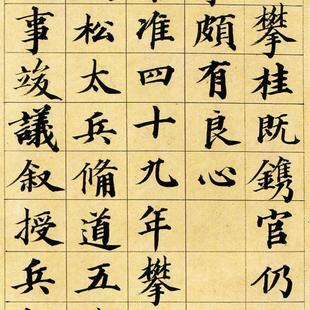 攀桂既鐫官仍
頗有良心
准四十九年攀
松太兵備道五
事竣議叙授兵